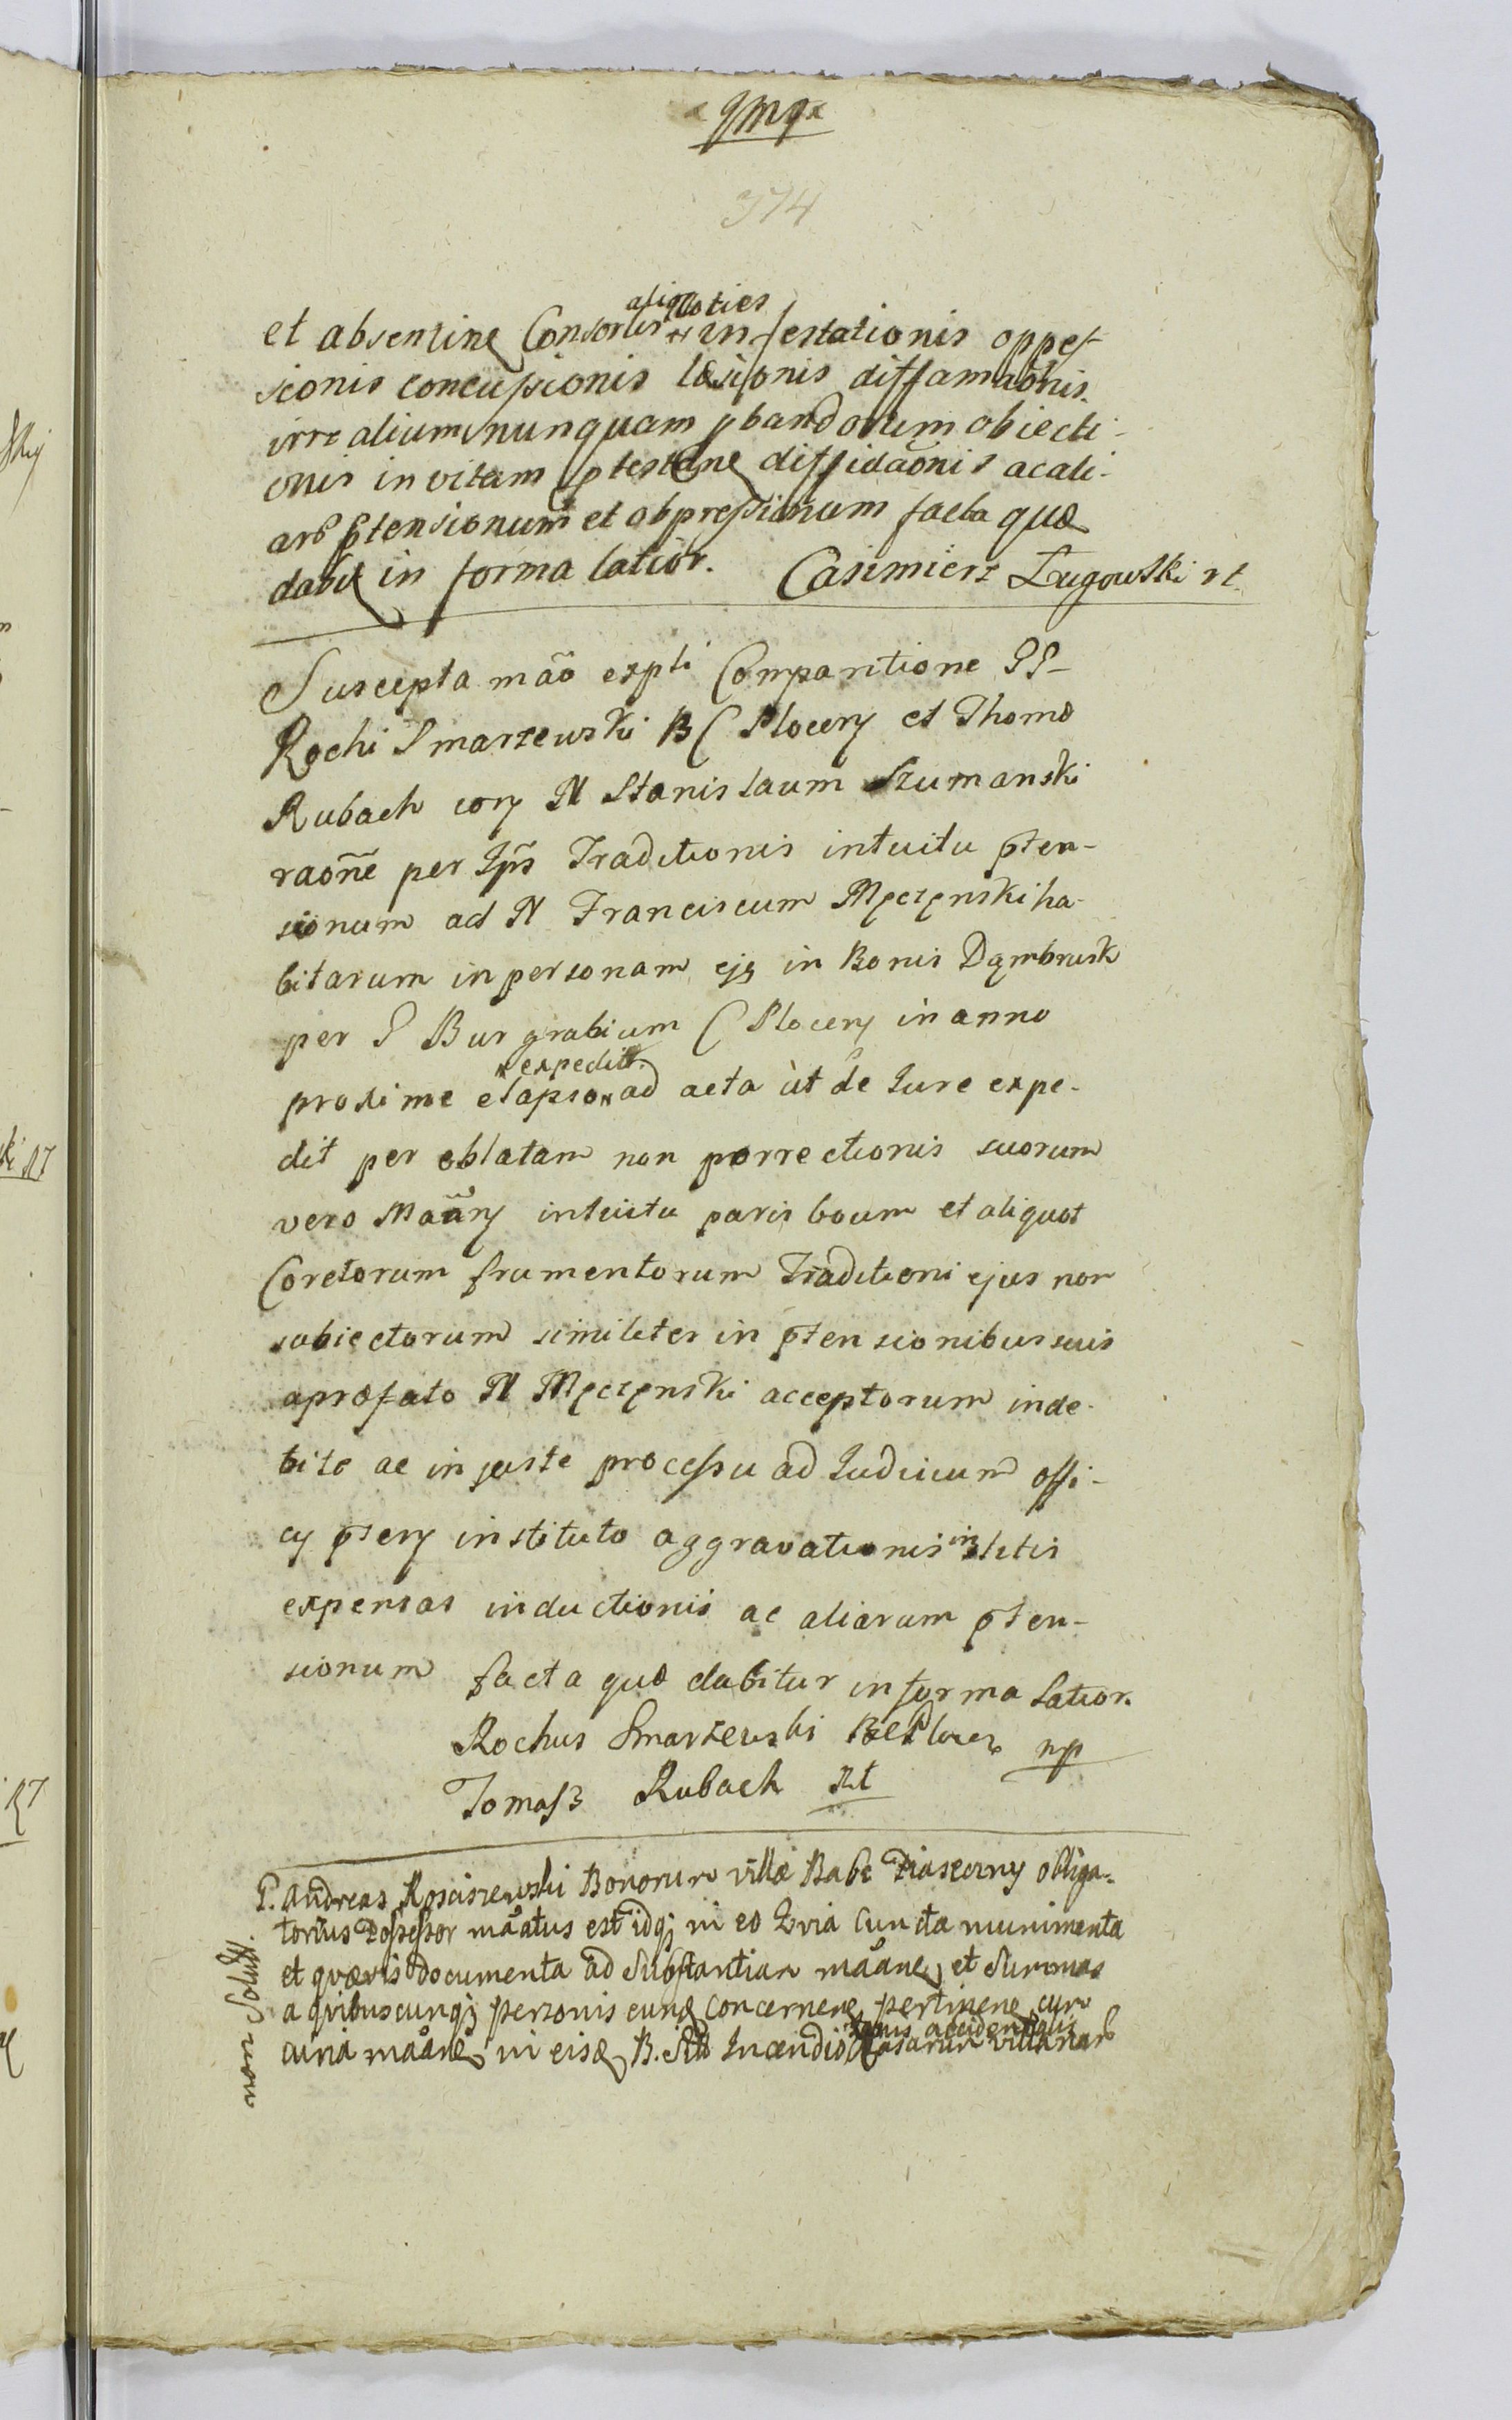 374
et absentiae Consortis aliquoties infestationis oppes-
sionis concussionis læsionis diffamaõnis
irrealium nunquam pbandorum obiecti-
onis in vitam diffidaõnis ac ali-
arū ptensionum et obpressionum facta quæ
dabit in forma latior. Casimierz Ługowski rt
Suscepta mãõ expti Comparitione PP
Rochi Smarzewski B C Plocen et Thomæ
Rubach con N Stanislaum Szumanski
raõne per Ips Traditionis intuitu pten-
sionum ad N Franciscum Męczenski ha-
bitarum in personam ejq in Bonis Dąmbrusk
per P Burgrabium C Plocen in anno
proxime elapso expedit. ad acta ut de Jure expe-
dit per oblatam non porrectionis suorum
vero intuitu paris boum et aliquot
Coretorum frumentorum Traditioni ejus non
subiectorum similiter in ptensionibus suis
a præfato N Męczenski acceptorum inde-
bite ac injuste processu ad Judicium offi-
cy pten instituto aggravationis in litis
expensas inductionis ac aliarum pten-
sionum facta quæ dabitur in forma latior.
Rochus Smarzewski mp
Tomasz Rubach Rt
P. Andreas Rosciszewski Bonorum villæ Babe Piaseczny obliga-
torius Possessor mãatus est idqj in eo qvia cuncta munimenta
et qvævis documenta ad Substantiam mãane et Summas
a qvibuscunqj personis eunq concernene pertinene cum
curia mãane in eisq B. sita Incendio Casarum villanarū
tanis accidentalis
non Solutt.